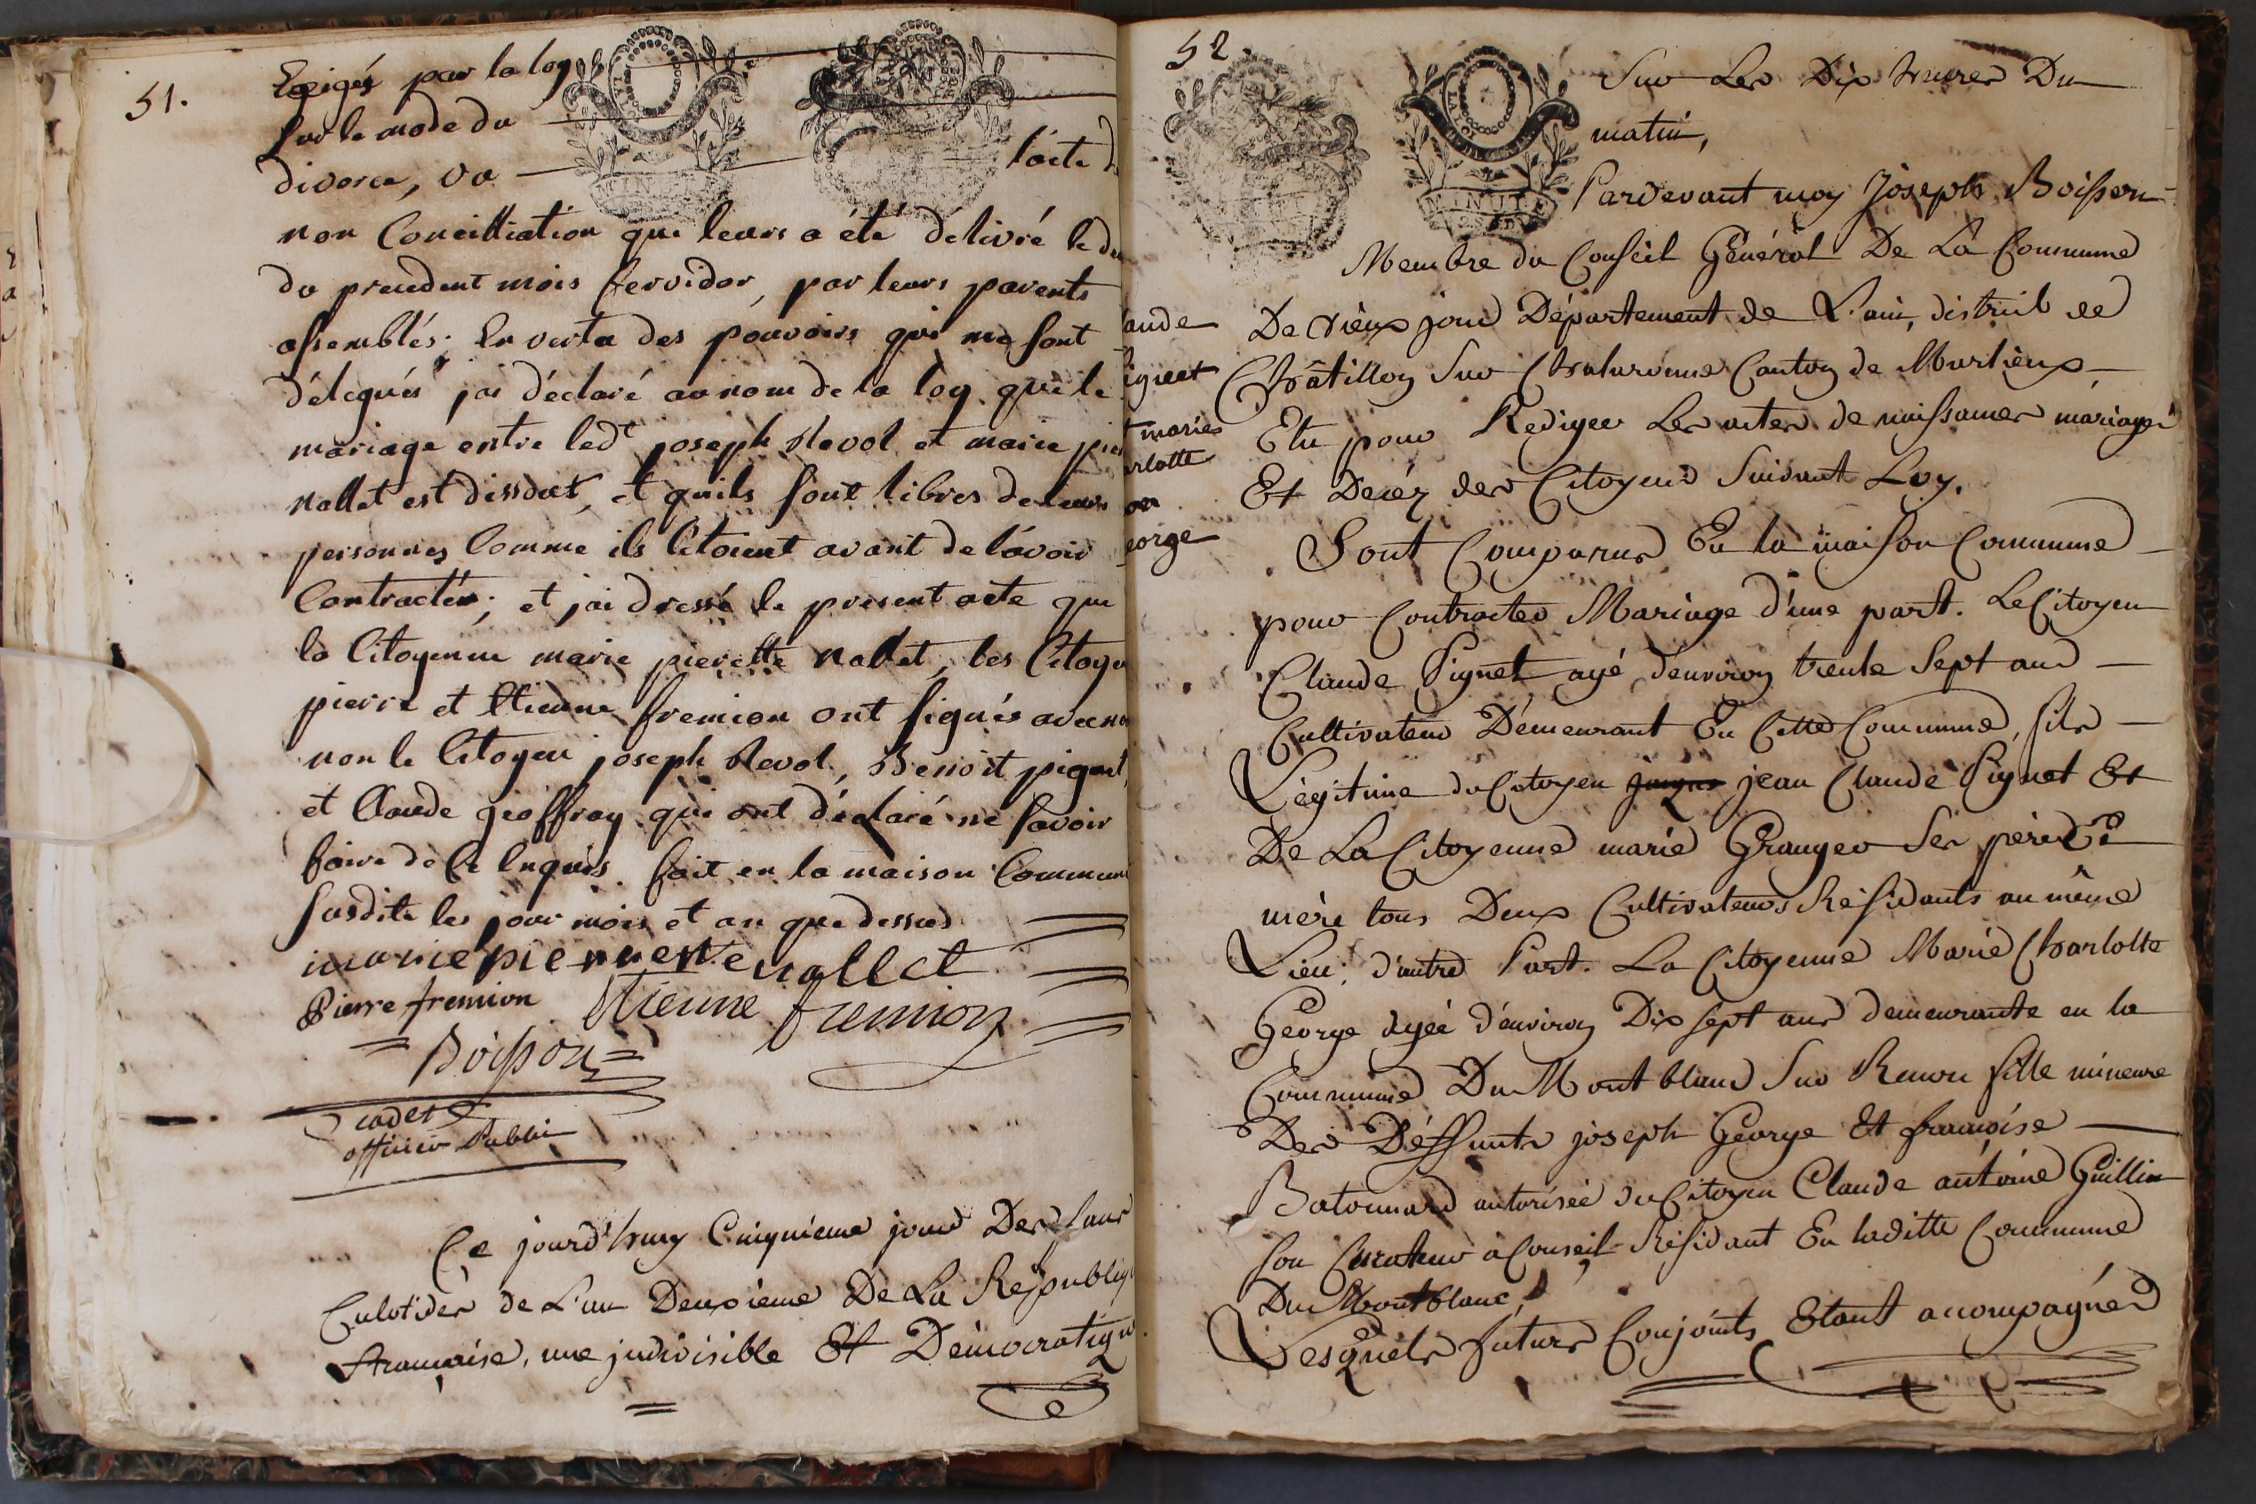 51.
Exigés par la loy
sur le mode du
divorce, vû l'acte de
non Conciliation qui leurs a été délivré le
du precedent mois fervidor, par leurs parents
assemblés; En vertu des pouvoirs qui me sont
délegués j'ai déclaré au nom de la loy que le
mariage entre led.t joseph Revol et marie
Nallet est dissout, et quils sont libres de leurs
personnes Comme ils l'etoient avant de l'avoir
Contractés; et j'ai dressé le present acte que
la Citoyenne marie pierette Nallet, les Citoy
pierre et Etienne fremion ont signés avec
non le Citoyen joseph Revol, Benoit
et Claude geoffray qui ont déclaré ne savoir
faire de ce Enquis. fait en la maison Commun
susdite les jour mois et an que dessus
marie pierrette nallet
Pierre fremion Etienne fremion
Boisson
cadet
officier Public
Ce jourd'huy Cinquieme jour Des Sans
Culotides de L'an Deuxieme De La Républiq
francaise, une indivisible Et Démocratiqu
52
Sur Les Dix heures Du
matin,
Pardevant moy Joseph Boisson
Membre du Conseil Général De La Commune
De vieux jour Département de L'ain, district de
Châtillon Sur Chalaronne Canton de Marlieux
Elu pour Rediger Les actes de naissances mariages
Et Decéz des Citoyens Suivant Loy.
aude
ignet
t marie
arlotte
eorge
Sont Comparus En la maison Commune
pour Contracter Mariage d'une part. Le Citoyen
Claude Pignet agé d'environ trente Sept ans
Cultivateur Démeurant En Cette Commune, fils
Légitime du Citoyen jean Claude Pignet Et
De La Citoyenne marie Granger Ses père Et
mère tous Deux Cultivateurs Résidants au même
Lieu; d'autre Part. La Citoyenne Marie Charlotte
George agée d'environ Dix sept ans demeurante en la
Commune Du Mont blanc Sur Renon fille mineure
Des Déffunts joseph George Et françoise
Batonnard autorisée du Citoyen Claude antoine Guillin
son Curateur a Conseil Résidant En laditte Commune
Du Mont blanc,
Lesquels futurs Conjoints Etant acompagnés